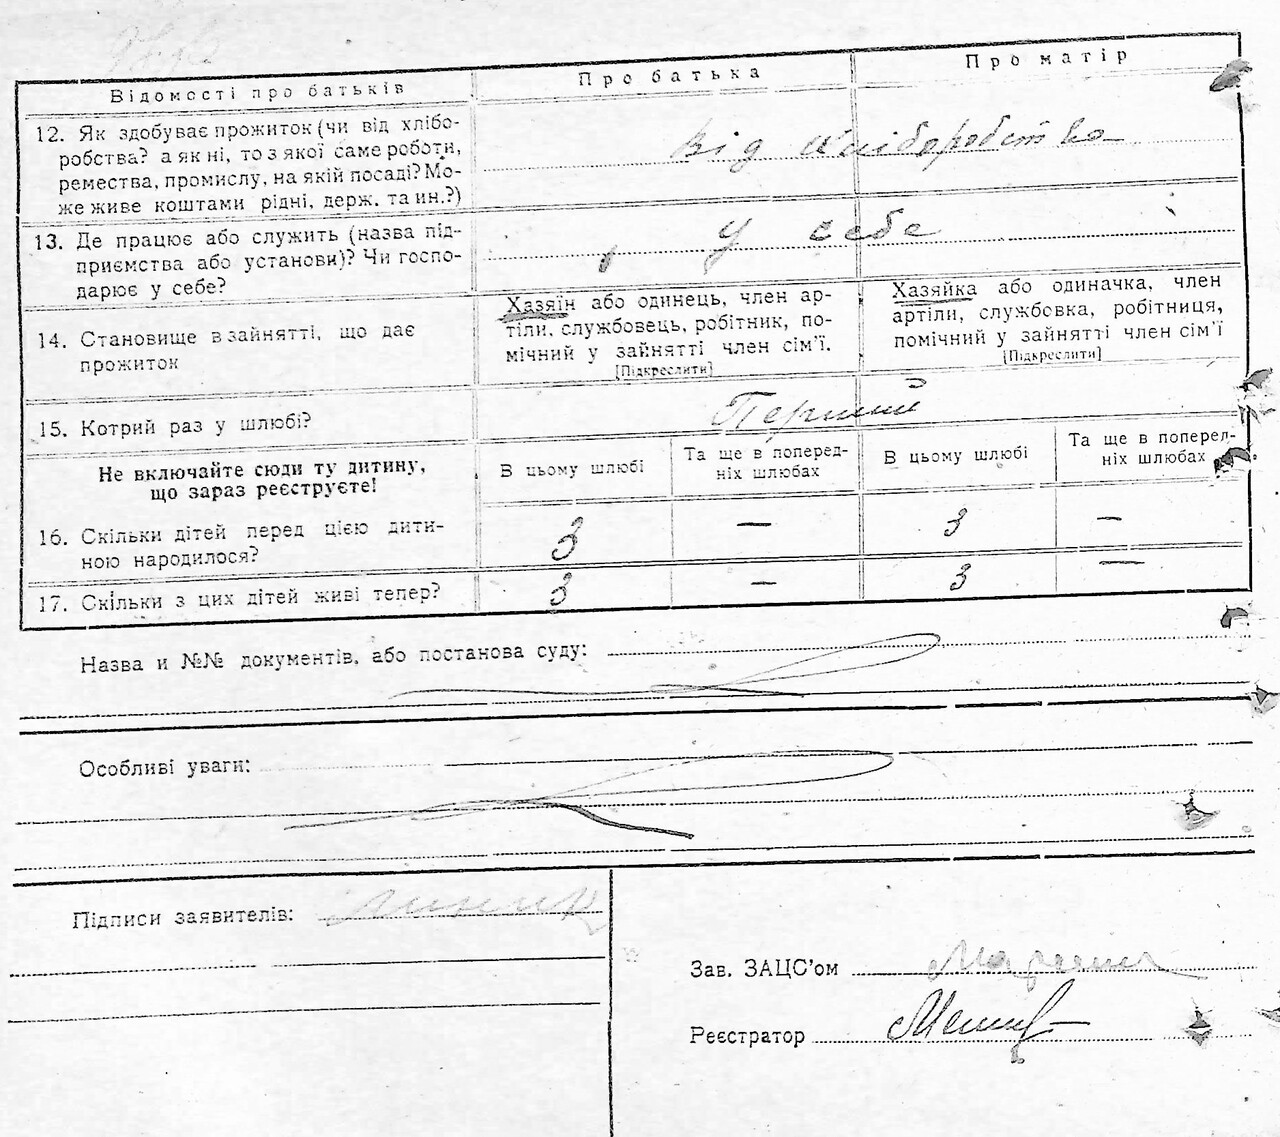 Відомості про батьків Про батька Про матір
12. Як здобуває прожиток (чи від хлібо-
робства? а як ні, то з якої саме роботи,
ремества, промислу, на якій посаді? Мо-
же живе коштами рідні, держ. та ин.?)
Від хліборобства
13. Де працює або служить (назва під-
приємства або установи)? Чи госпо-
дарює у себе?
у себе
14. Становище в зайнятті, що дає
прожиток
Хазяїн або одинець, член ар-
тіли, службовець, робітник, по-
мічний у зайнятті член сім'ї.
[Підкреслити]
Хазяйка або одиначка, член
артіли, службовка, робітниця,
помічний у зайнятті член сім'ї
[Підкреслити]
15. Котрий раз у шлюбі? Перший
Не включайте сюди ту дитину,
що зараз реєструєте!
В цьому шлюбі
Та ще в поперед-
ніх шлюбах
В цьому шлюбі
Та ще в поперед-
ніх шлюбах
16. Скільки дітей перед цією дити-
ною народилося?
3 — 3 —
17. Скільки з цих дітей живі тепер? 3 — 3 —
Назва и №№ документів, або постанова суду:
Особливі уваги:
Підписи заявителів:
Зав. ЗАЦС'ом
Реєстратор